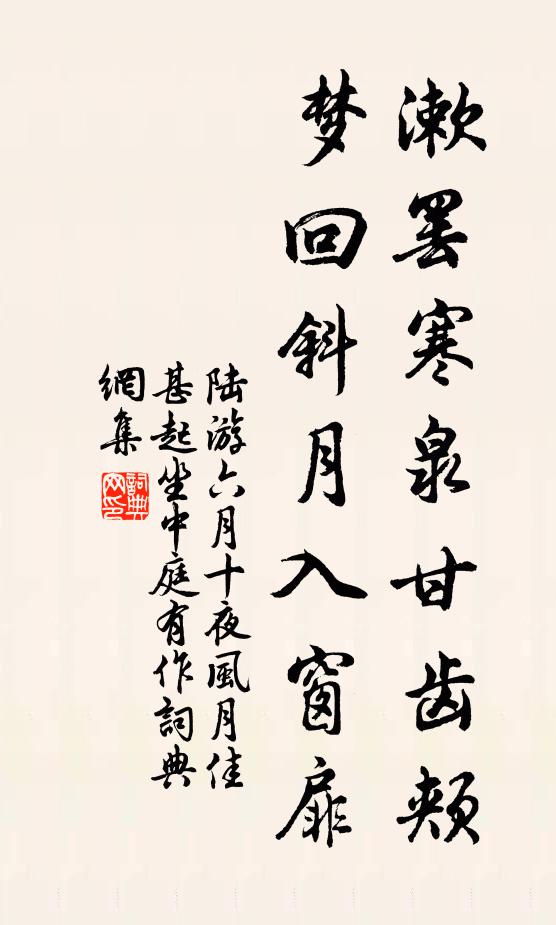 漱罢寒泉甘齿颊
梦回斜月入窗扉
陆游六月十夜風月佳
甚起坐中庭有作詞典
網集
詞典网印